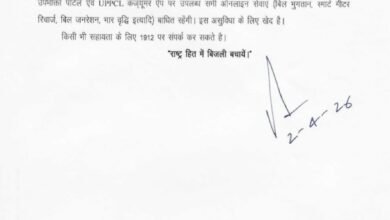 उपभोक्ता पोर्टल एवं UPPCL कंज्यूमर ऐप पर उपलब्ध सभी ऑनलाइन सेवाएं (बिल भुगतान, स्मार्ट मीटर
रिचार्ज, बिल जनरेशन, भार वृद्धि इत्यादि) बाधित रहेंगी। इस असुविधा के लिए खेद है।
किसी भी सहायता के लिए 1912 पर संपर्क कर सकते है।
"राष्ट्र हित में बिजली बचायें।"
2-4-26